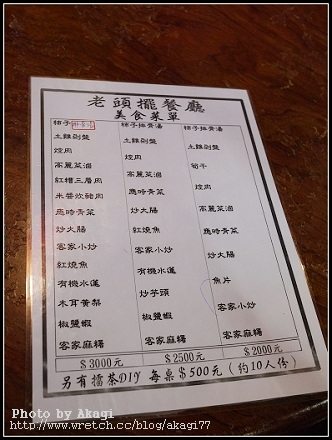 老頭擺餐廳
美食菜單
柿子
土雞剁盤
焢肉
高麗菜滷
紅糟三層肉
炊豬肉
應時青菜
炒大腸
客家小炒
紅燒魚
有機水蓮
木耳黃梨
椒鹽蝦
客家麻糬
$3000元
柿子排骨湯
土雞剁盤
焢肉
高麗菜滷
應時青菜
炒大腸
紅燒魚
客家小炒
有機水蓮
炒芋頭
椒鹽蝦
客家麻糬
$2500元
柿子排骨湯
土雞剁盤
筍干
焢肉
高麗菜滷
應時青菜
炒大腸
魚片
客家小炒
客家麻糬
$2000元
另有擂茶DIY 每桌$500元(約10人份)
Photo by Akagi
http://www.wretch.cc/blog/akagi77